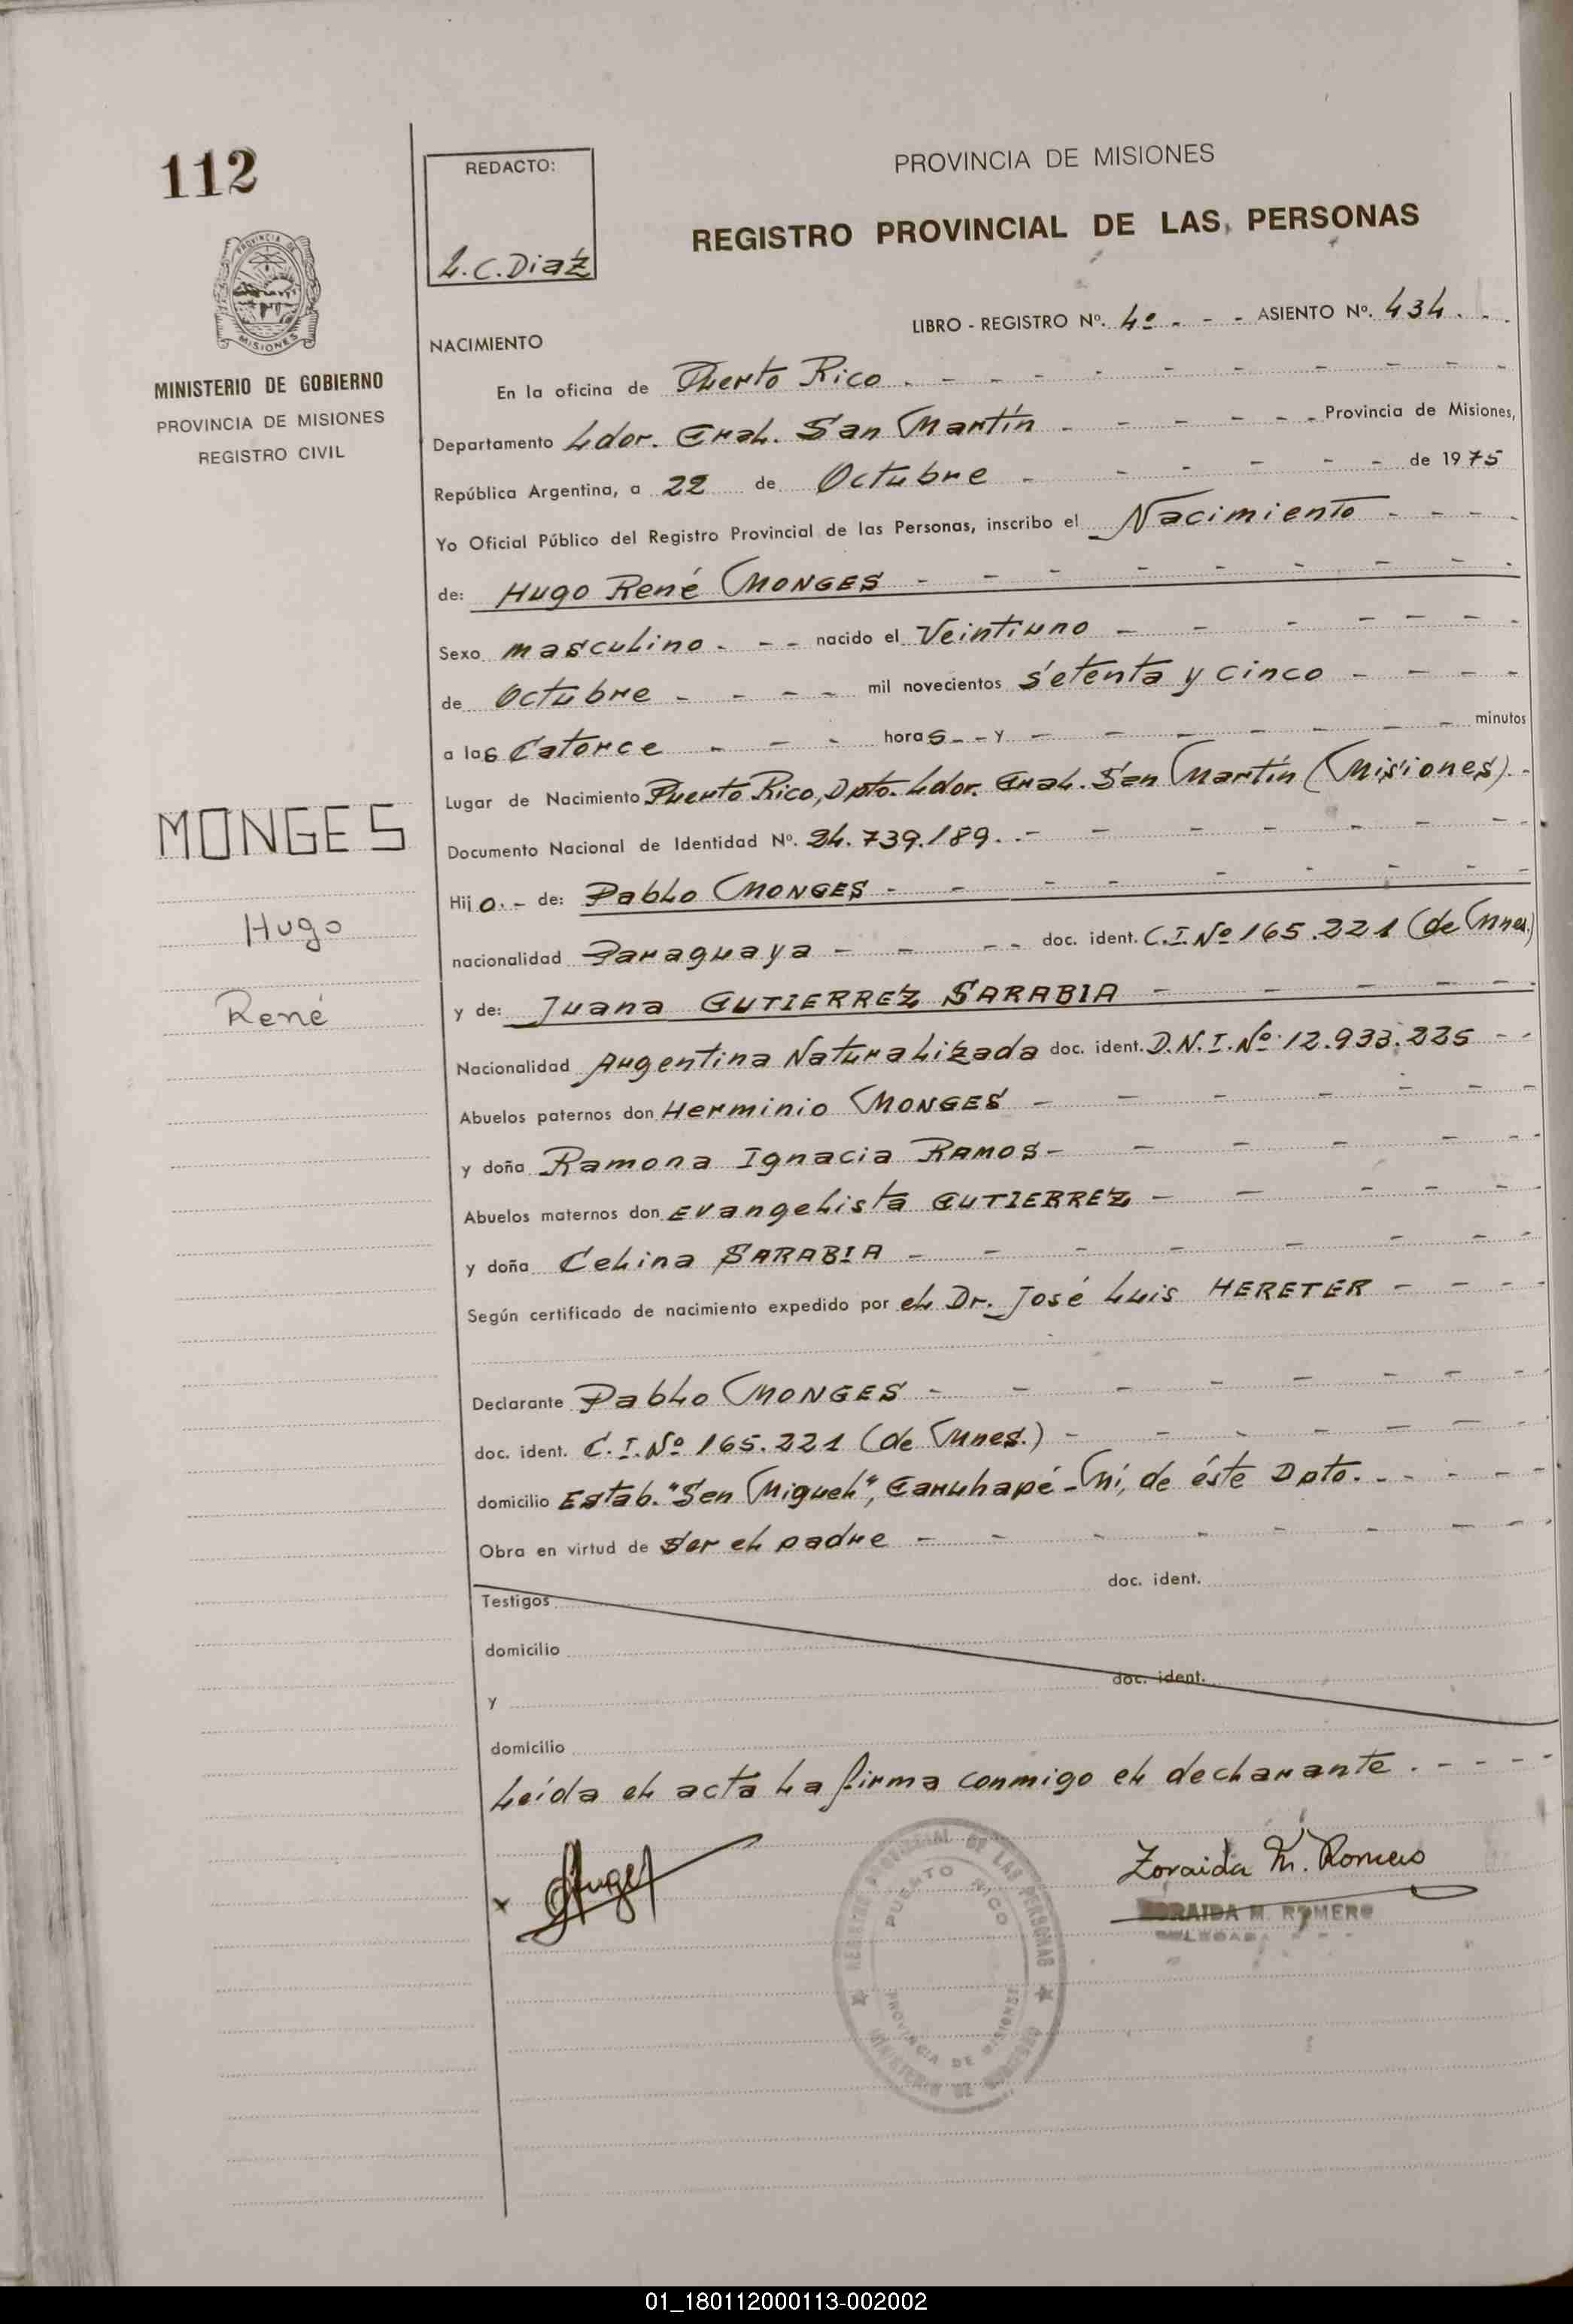 112
REDACTO:
L.C. Diaz
PROVINCIA DE MISIONES
REGISTRO PROVINCIAL DE LAS PERSONAS
PROVINCIA DE
MISIONES
MINISTERIO DE GOBIERNO
PROVINCIA DE MISIONES
REGISTRO CIVIL
LIBRO - REGISTRO Nº. 4º - - - ASIENTO Nº. 434. - -
NACIMIENTO
En la oficina de Puerto Rico
Departamento Ldor. Gral. San Martín - - - - - - Provincia de Misiones,
República Argentina, a 22 de Octubre - - - - - - de 1975
Yo Oficial Público del Registro Provincial de las Personas, inscribo el Nacimiento - - - -
de: Hugo René MONGES - - - - - - - - -
Sexo masculino. - - - nacido el Veintiuno - - - - - - -
de Octubre - - - - mil novecientos Setenta y cinco - - - -
a las Catorce - - - horas - - y - - - - - - - minutos
Lugar de Nacimiento Puerto Rico, Dpto. Ldor. Gral. San Martín (Misiones). -
Documento Nacional de Identidad Nº. 24.739.189. - - - - - - - -
Hijo. - de: Pablo MONGES - - - - - - - -
nacionalidad Paraguaya - - - - doc. ident. C.I. Nº 165.221 (de Mnes.)
y de: Juana GUTIERREZ SARABIA - - - - - -
Nacionalidad Argentina Naturalizada doc. ident. D.N.I. Nº 12.933.225 - -
Abuelos paternos don Herminio MONGES - - - - - - -
y doña Ramona Ignacia RAMOS - - - - - - -
Abuelos maternos don Evangelista GUTIERREZ - - - - - -
y doña Celina SARABIA - - - - - - - -
Según certificado de nacimiento expedido por el Dr. José Luis HERETER - - - -
Declarante Pablo MONGES - - - - - - - -
doc. ident. C.I. Nº 165.221 (de Mnes.) - - - - - - -
domicilio Estab. "San Miguel", Caruhapé-Mí, de éste Dpto. - - - - -
Obra en virtud de ser el padre - - - - - - - -
doc. ident.
Testigos
domicilio
doc. ident.
y
domicilio
Leída el acta la firma conmigo el declarante. - - - -
MONGES
Hugo
René
x
REGISTRO PROVINCIAL DE LAS PERSONAS
PUERTO RICO
PROVINCIA DE MISIONES
MINISTERIO DE GOBIERNO
Zoraida M. Romero
ZORAIDA M. ROMERO
01_180112000113-002002